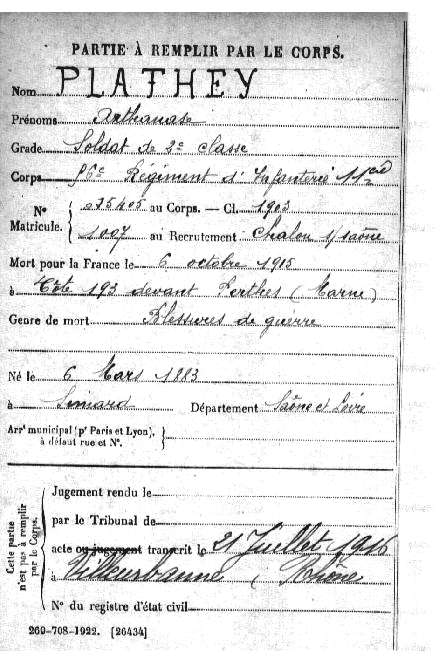 PARTIE À REMPLIR PAR LE CORPS.
Nom PLATHEY
Prénoms Anthanase
Grade Soldat de 2e classe
Corps 56e Régiment d'Infanterie
N° Matricule. 075405 au Corps. — Cl. 1903
1007 au Recrutement Chalon s/Saône
Mort pour la France le 6 octobre 1915
à Côte 193 devant Perthes (Marne)
Genre de mort Blessures de guerre
Né le 6 Mars 1883
à Simard Département Saône et Loire
Arrt municipal (pr Paris et Lyon),
à défaut rue et N°.
Cette partie n'est pas à remplir par le Corps.
Jugement rendu le
par le Tribunal de
acte ou jugement transcrit le 21 Juillet 1916
à Villeurbanne (Rhône
N° du registre d'état civil
269-708-1922. [26434]